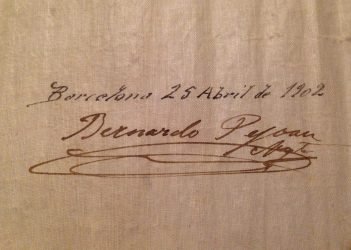 Barcelona 25 Abril de 1902
Bernardo Pejoan